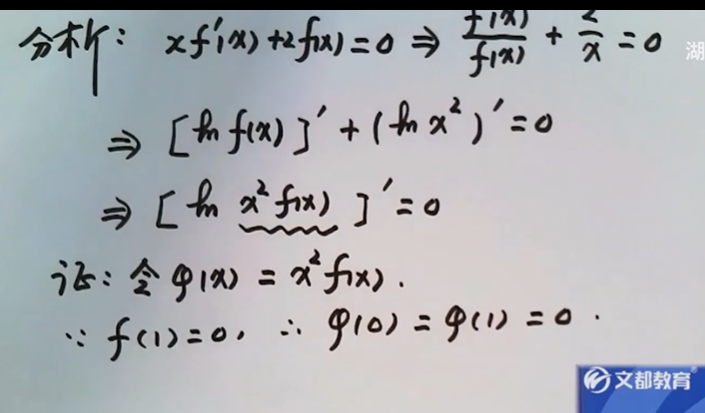 分析: xf'(x)+2f(x)=0 ⇒ f'(x)/f(x) + 2/x = 0
湖
⇒ [ln f(x)]' + (ln x²)' = 0
⇒ [ln x²f(x)]' = 0
证: 令 φ(x) = x²f(x).
∵ f(1)=0, ∴ φ(0) = φ(1) = 0.
文都教育